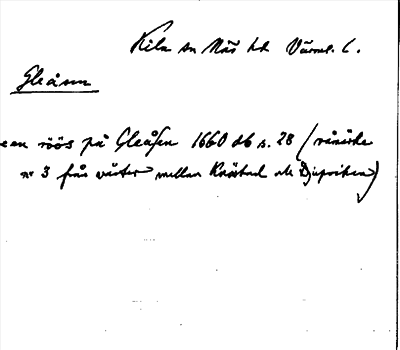 Kila sn Näs hd Värml. l.
Gleåsen
een röös på Gleåsen 1660 db s. 28 (råmärke
nr 3 från väster mellan och Djupviken)